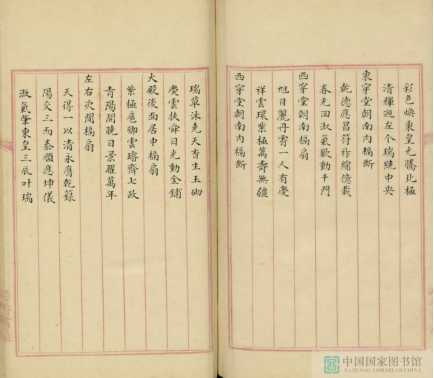 彩色煥東皇光騰北極
清輝迎左个瑞繞中央
東穿堂朝南內槅斷
乾德應昌符祚綿億載
春光回淑氣歡動千門
西穿堂朝南槅扇
旭日麗丹霄一人有慶
祥雲環紫極萬壽無疆
西穿堂朝南內槅斷
瑞草沐堯天香生玉砌
慶雲扶舜日光動金鋪
大殿後面居中槅扇
紫極扈卿雲璿齊七政
青陽開曉日景耀萬年
左右次間槅扇
天得一以清永膺乾籙
陽交三而泰順應坤儀
淑氣肇東皇三辰叶瑞
中国国家图书馆
NATIONAL LIBRARY OF CHINA